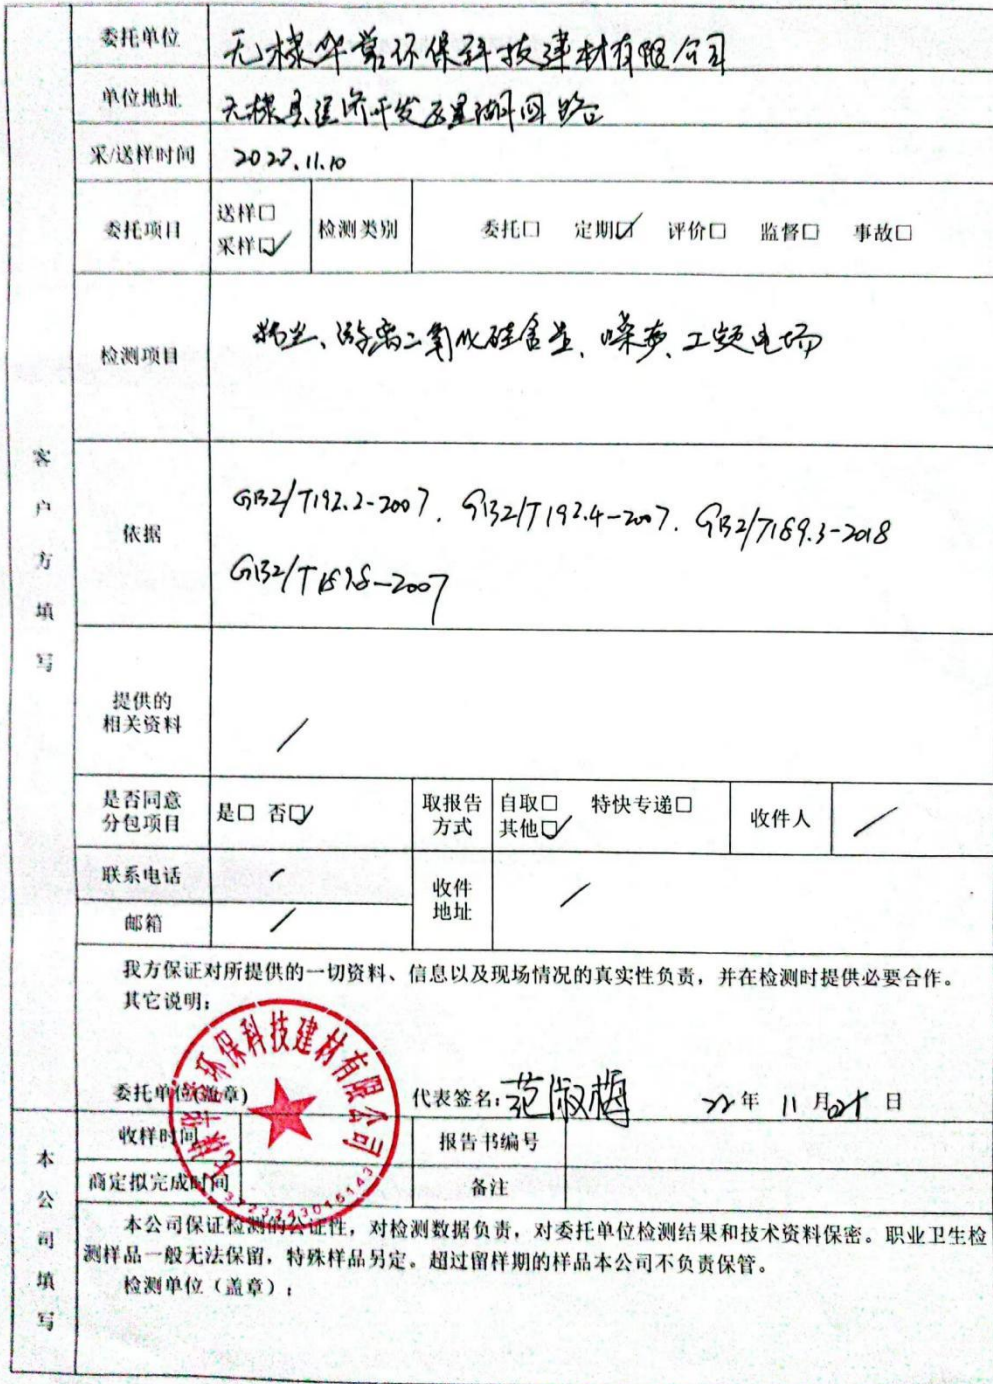 委托单位 无棣华常环保科技建材有限公司
单位地址 无棣县经济开发区星湖四路
采/送样时间 2022.11.10
委托项目 送样□ 采样☑ 检测类别 委托□ 定期☑ 评价□ 监督□ 事故□
检测项目 粉尘、游离二氧化硅含量、噪声、工频电场
客户方填写
依据 GBZ/T192.2-2007、GBZ/T192.4-2007、GBZ/T189.3-2018
GBZ/T189.8-2007
提供的
相关资料 /
是否同意
分包项目 是□ 否☑ 取报告
方式 自取□ 特快专递□
其他☑ 收件人 /
联系电话 / 收件
地址 /
邮箱 /
我方保证对所提供的一切资料、信息以及现场情况的真实性负责，并在检测时提供必要合作。
其它说明：
环保科技建材有限公司
委托单位(盖章) 代表签名：范淑梅 22年 11月 日
本公司填写
收样时间 报告书编号
商定拟完成时间 备注
本公司保证检测的公证性，对检测数据负责，对委托单位检测结果和技术资料保密。职业卫生检
测样品一般无法保留，特殊样品另定。超过留样期的样品本公司不负责保管。
检测单位（盖章）：